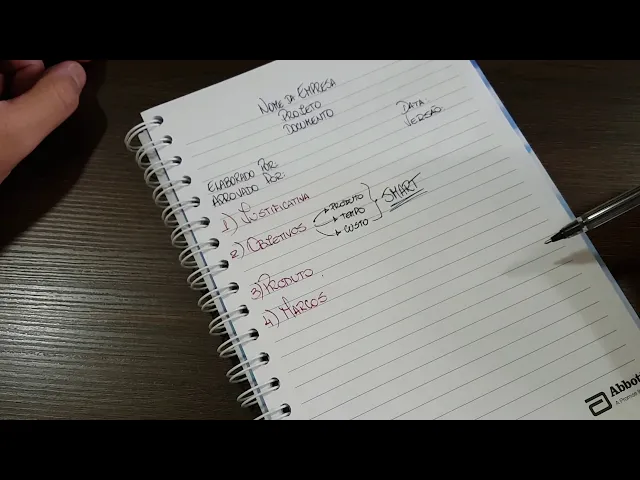 NOME DA EMPRESA
PROJETO
DOCUMENTO
DATA
VERSÃO
ELABORADO POR:
APROVADO POR:
1) JUSTIFICATIVA
2) OBJETIVOS
PRODUTO
TEMPO
CUSTO
SMART
3) PRODUTO
4) MARCOS
Abbot
A Promise